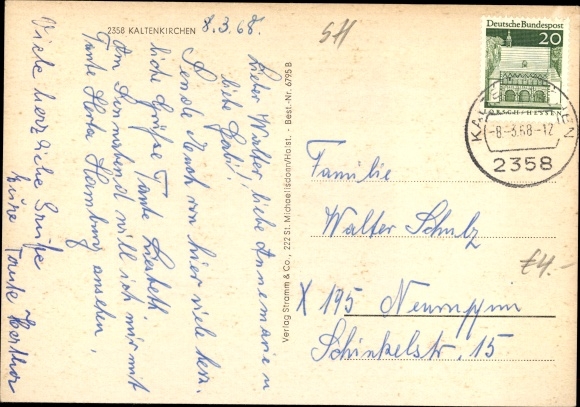 2358 KALTENKIRCHEN
8.3.68.
Lieber Walter, liebe Annemarie u
liebe Gabi!
Sende Euch von hier viele herz.
liche Grüße Tante Liesbeth
Am Sonnabend will ich mir mit
Tante Herta Hamburg ansehen,
Viele herzliche Grüße
Eure Tante
Verlag Stramm & Co., 222 St. Michaelisdonn/Holst. - Best.-Nr. 6795 B
SH
Deutsche Bundespost
20
LORSCH/HESSEN
KALTENKIRCHEN
-8.-3.68-12
2358
Familie
Walter Schulz
€4.-
X 195 Neuruppin
Schinkelstr. 15